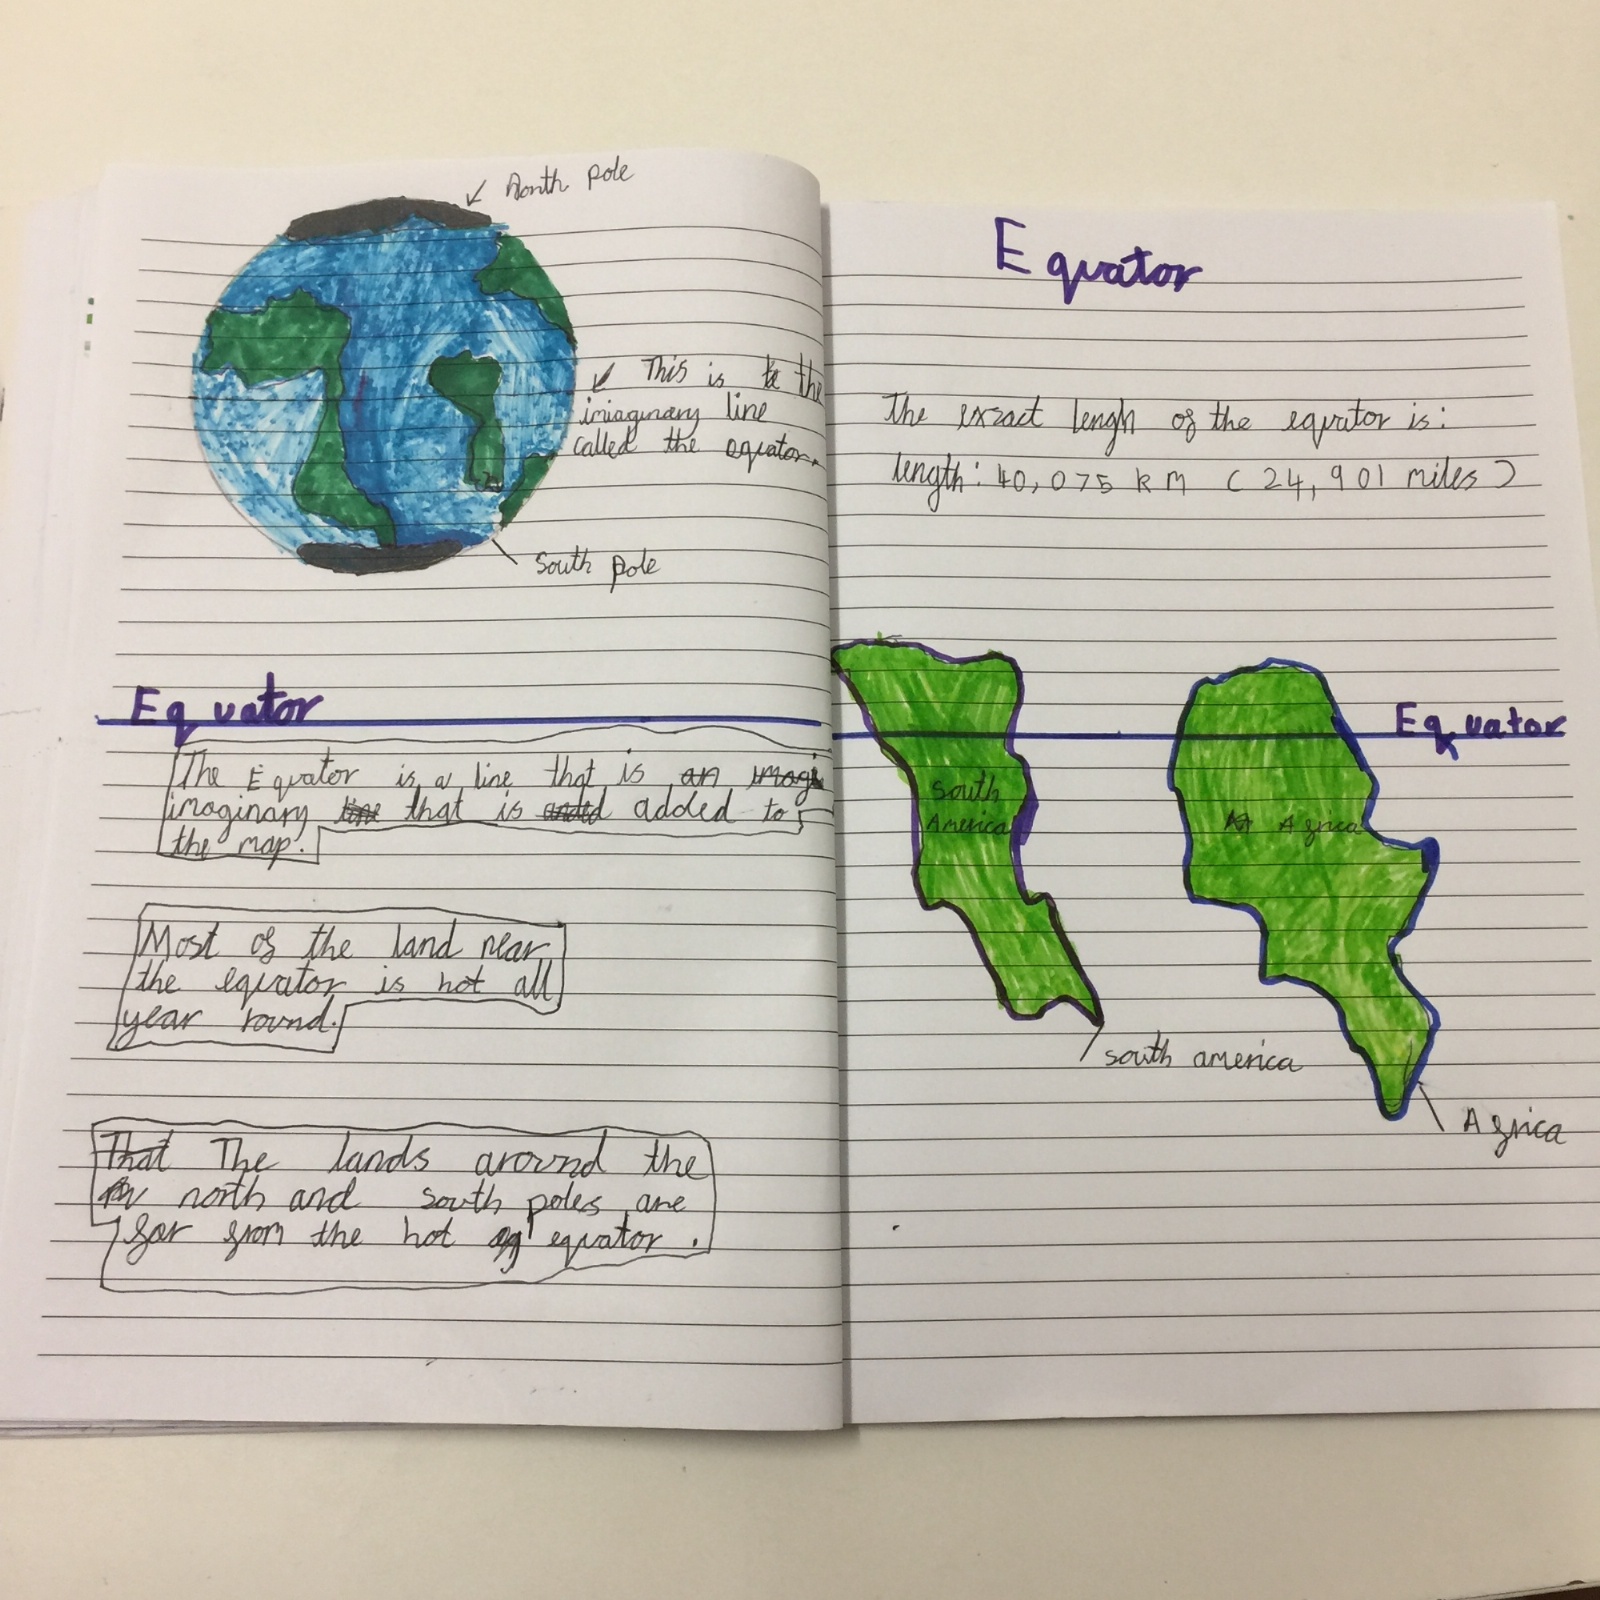 North pole
This is the
iniaginary line
called the equator.
South pole
Equator
The Equator is a line that is an imagi
imaginary line that is added added to
the map.
Most of the land near
the equator is hot all
year round.
That The lands around the
north and south poles are
far from the hot eq equator.
Equator
The exzact lengh of the equator is:
length: 40,075 km (24,901 miles)
Equator
South
America
Africa
south america
Africa